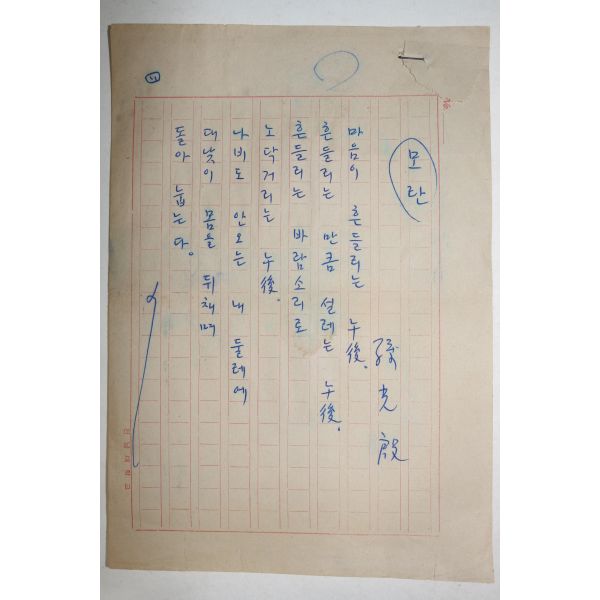 모란
孫光殷
마음이 흔들리는 午後.
흔들리는 만큼 설레는 午後.
흔들리는 바람소리로
노닥거리는 午後.
나비도 안오는 내 둘레에
대낮이 몸을 뒤채며
돌아 눕는다.